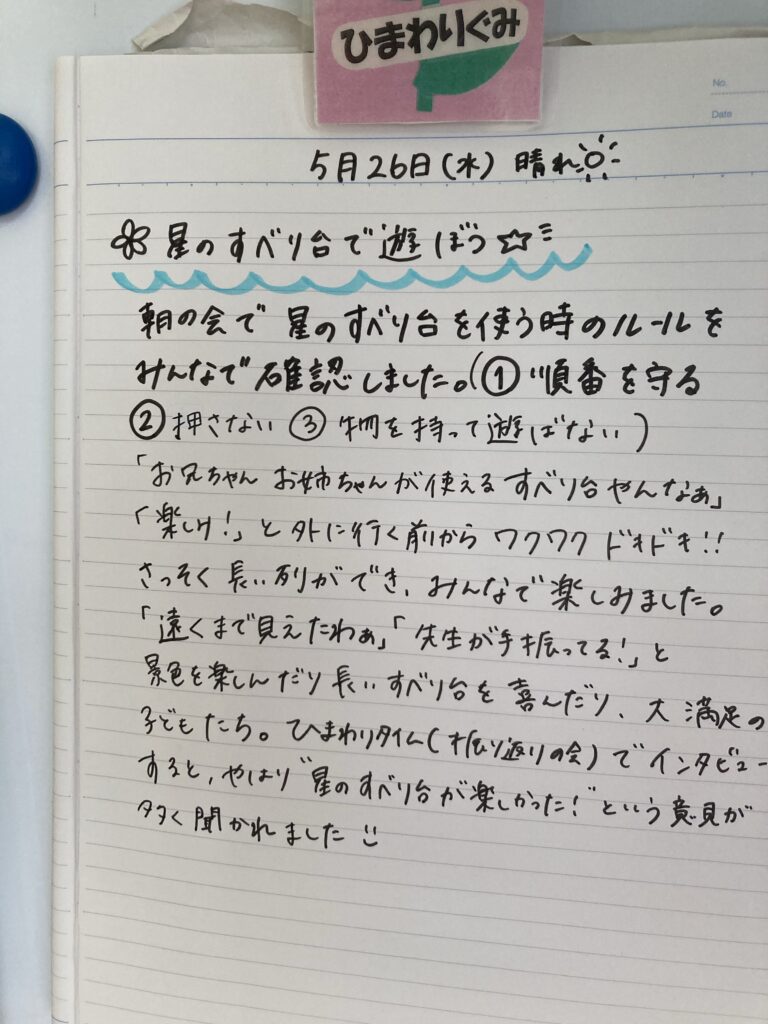 ひまわりぐみ
No.
Date
5月26日(水) 晴れ
星のすべり台で遊ぼう☆
朝の会で 星のすべり台を使う時のルールを
みんなで確認しました。(① 順番を守る
② 押さない ③ 物を持って遊ばない)
「お兄ちゃん お姉ちゃんが使える すべり台やんなぁ」
「楽しみ!」と外に行く前から ワクワク ドキドキ!!
さっそく 長い列ができ、みんなで楽しみました。
「遠くまで見えたわぁ」「先生が手振ってる!」と
景色を楽しんだり 長いすべり台を 喜んだり、大満足の
子どもたち。ひまわりタイム(振り返りの会)でインタビュー
すると、やはり"星のすべり台が楽しかった!"という意見が
多く聞かれました